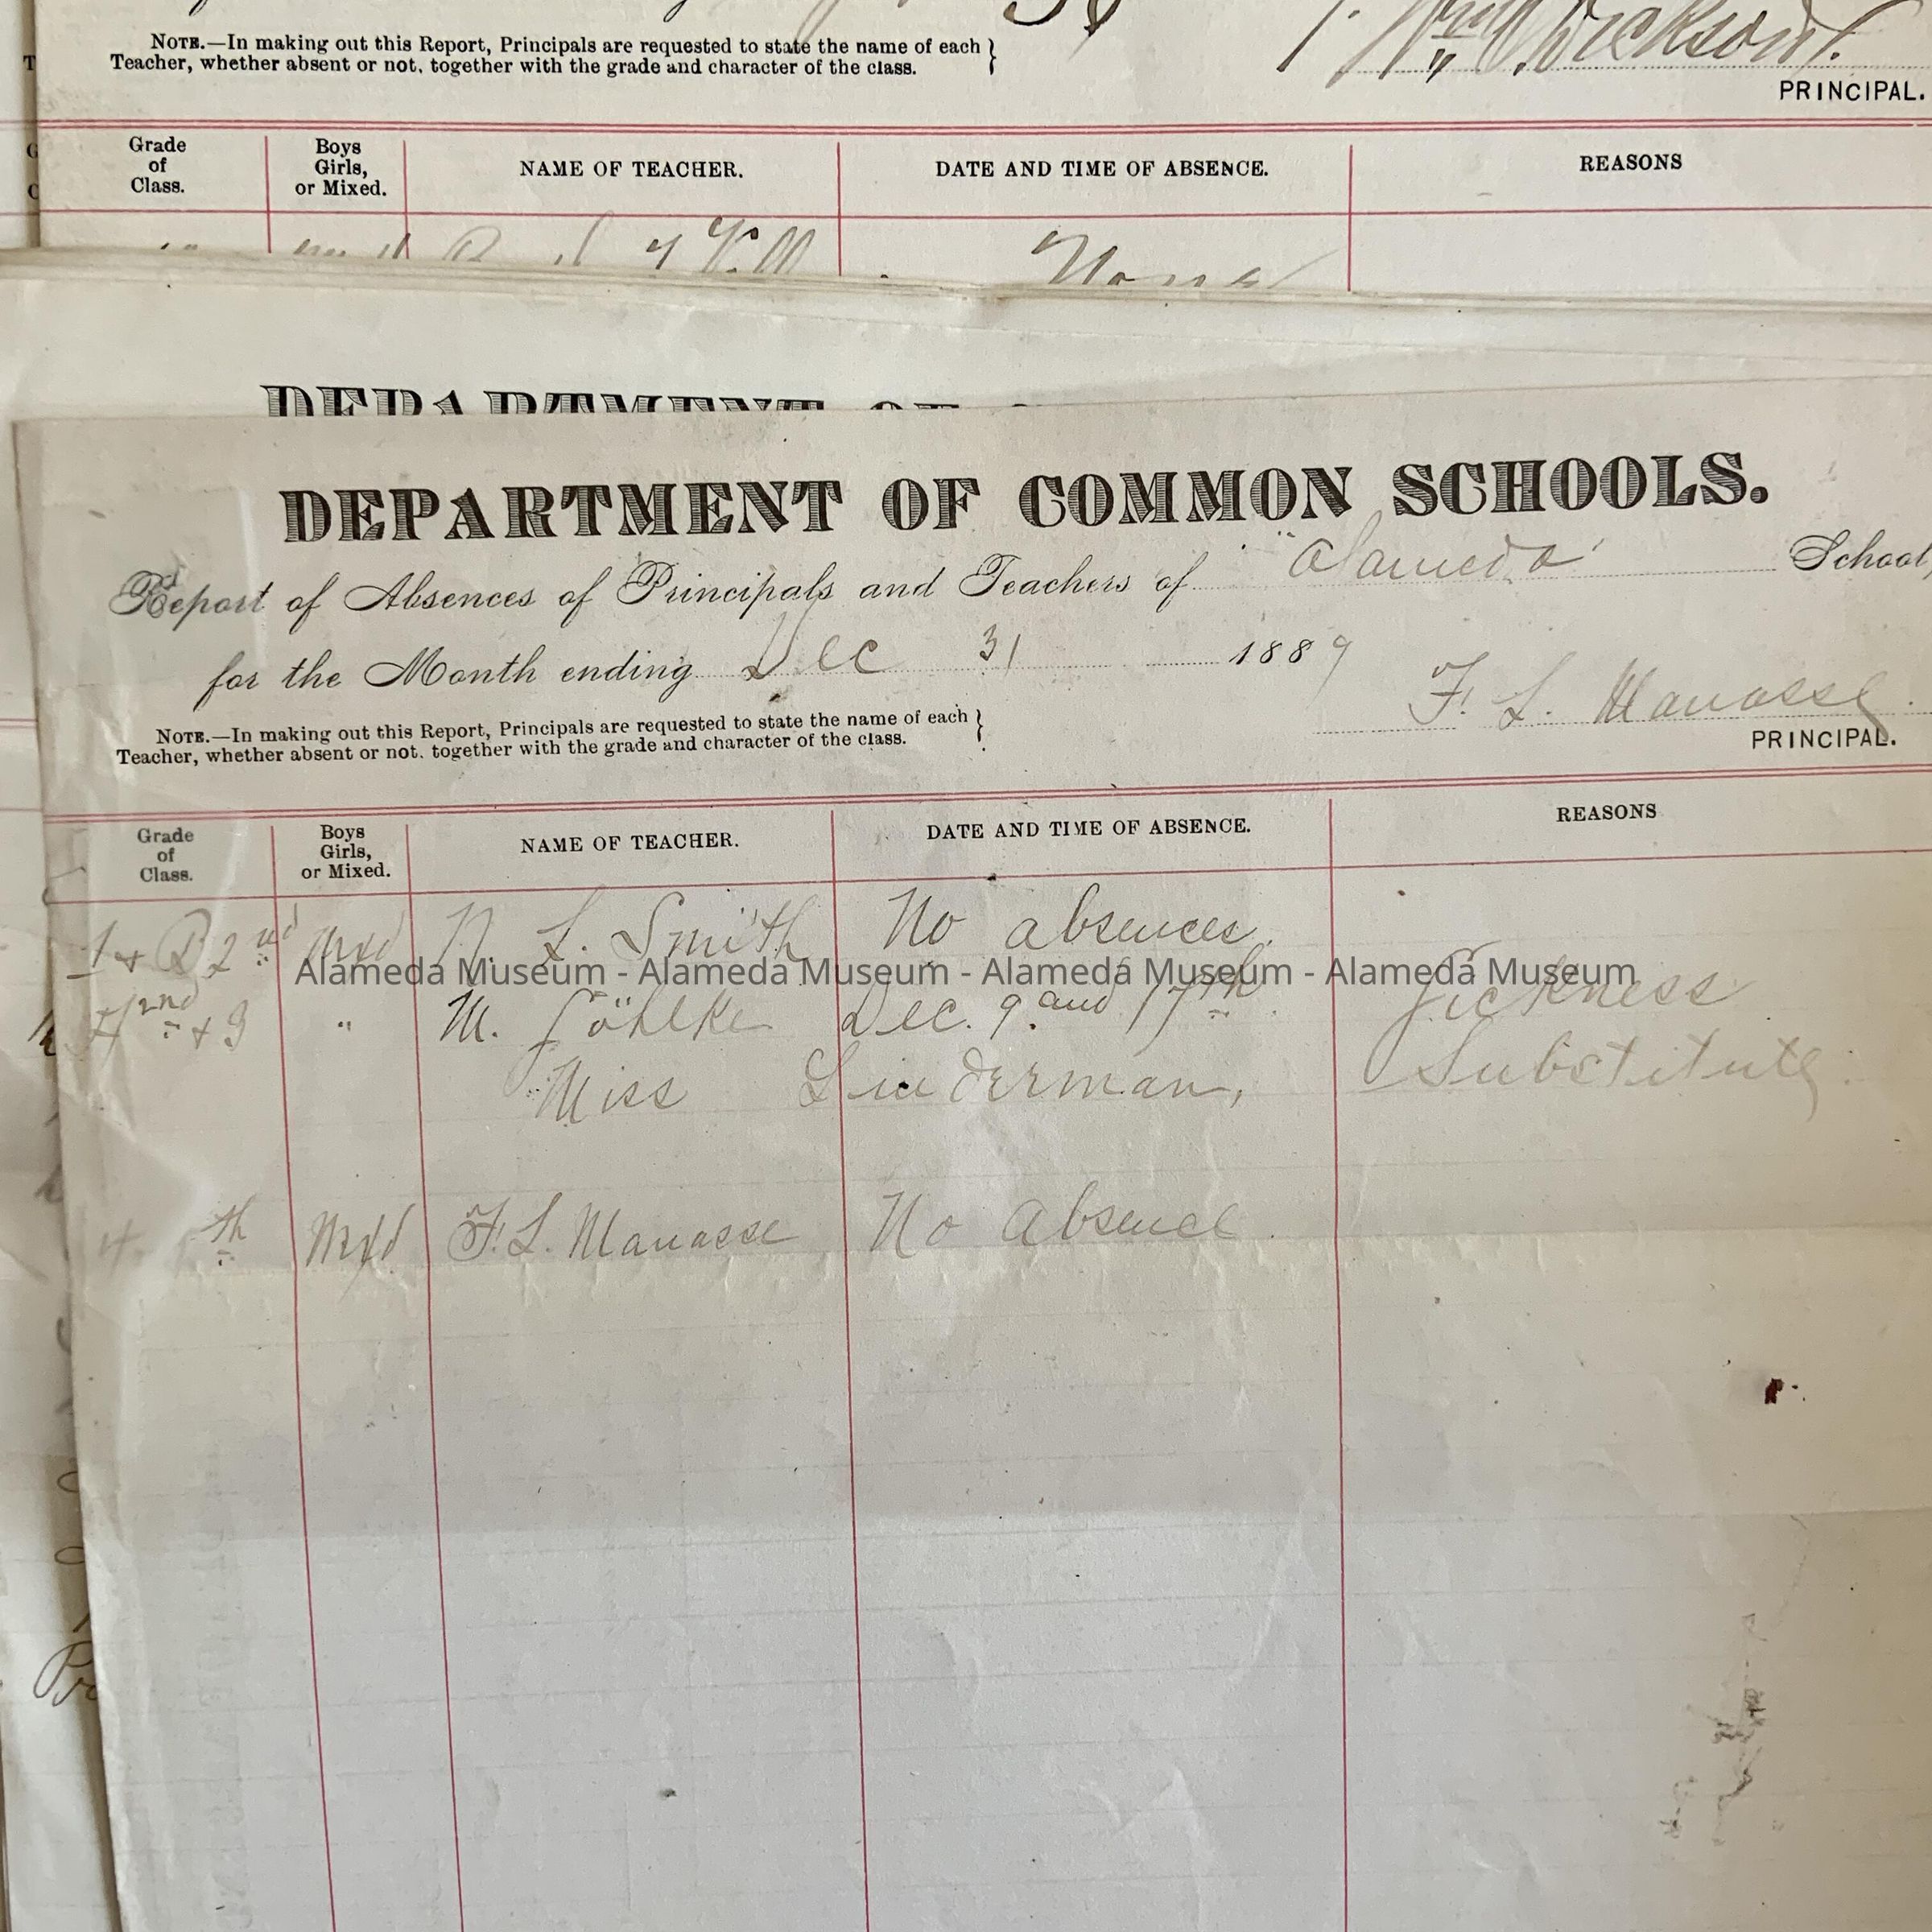 NOTE.—In making out this Report, Principals are requested to state the name of each
Teacher, whether absent or not, together with the grade and character of the class.
PRINCIPAL.
Grade of Class. Boys Girls, or Mixed. NAME OF TEACHER. DATE AND TIME OF ABSENCE. REASONS
None
DEPARTMENT OF
DEPARTMENT OF COMMON SCHOOLS.
Report of Absences of Principals and Teachers of "Alameda" School,
for the Month ending Dec 31 1889
F. L. Manasse.
NOTE.—In making out this Report, Principals are requested to state the name of each
Teacher, whether absent or not, together with the grade and character of the class.
PRINCIPAL.
Grade of Class. Boys Girls, or Mixed. NAME OF TEACHER. DATE AND TIME OF ABSENCE. REASONS
1 & B 2nd Mxd N. L. Smith No absences.
Alameda Museum - Alameda Museum - Alameda Museum - Alameda Museum
2nd & 3 " M. Göhlke Dec. 9. and 17th. Sickness
Miss Linderman, Substitute.
4th Mxd F. L. Manasse No Absence.